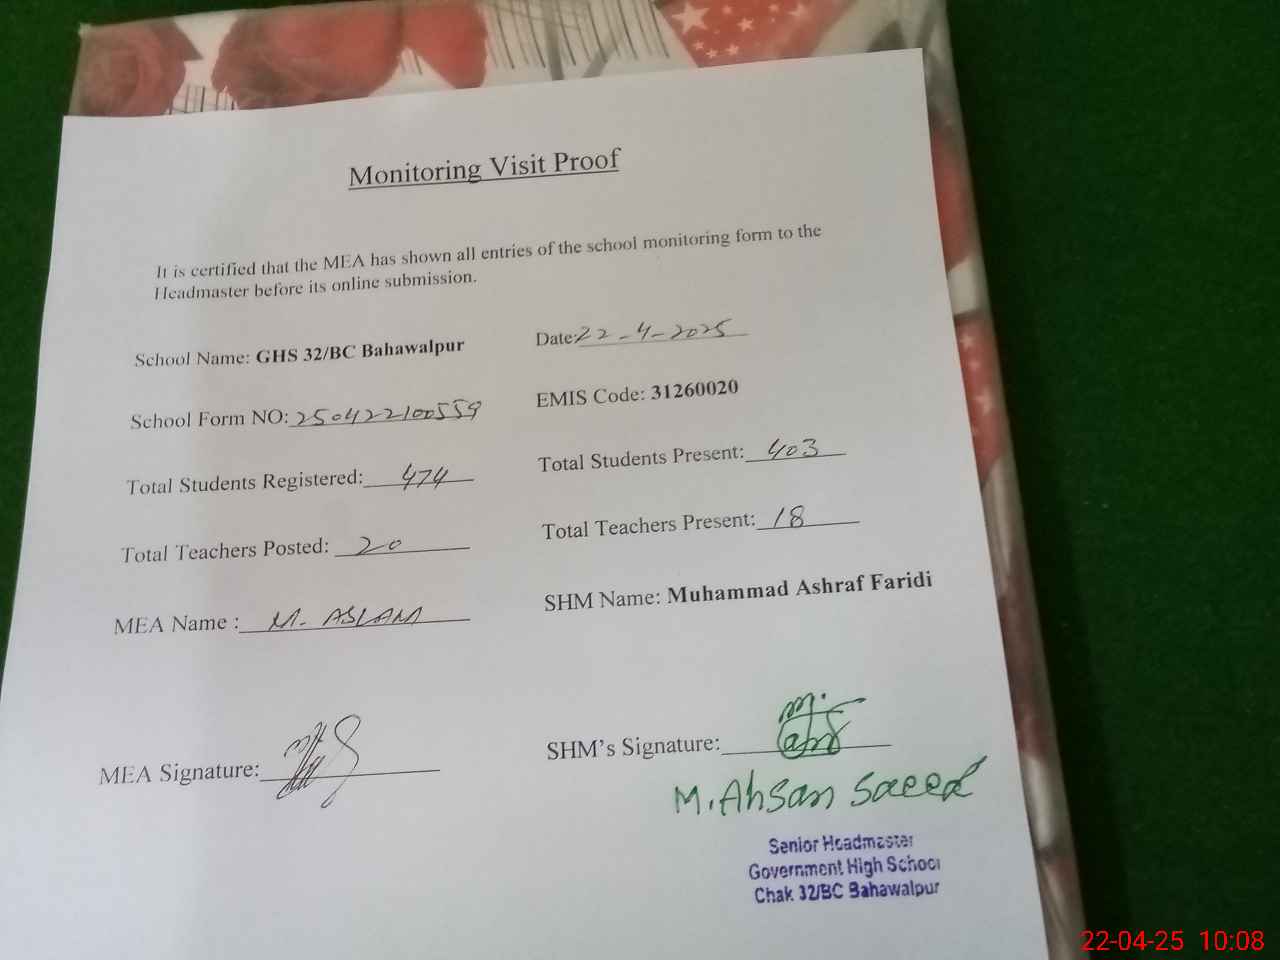 Monitoring Visit Proof
It is certified that the MEA has shown all entries of the school monitoring form to the
Headmaster before its online submission.
School Name: GHS 32/BC Bahawalpur
Date: 22-4-2025
School Form NO: 250422100559
EMIS Code: 31260020
Total Students Registered: 474
Total Students Present: 403
Total Teachers Posted: 20
Total Teachers Present: 18
MEA Name : M. ASLAM
SHM Name: Muhammad Ashraf Faridi
MEA Signature:
SHM's Signature:
M. Ahsan Saeed
Senior Headmaster
Government High School
Chak 32/BC Bahawalpur
22-04-25 10:08